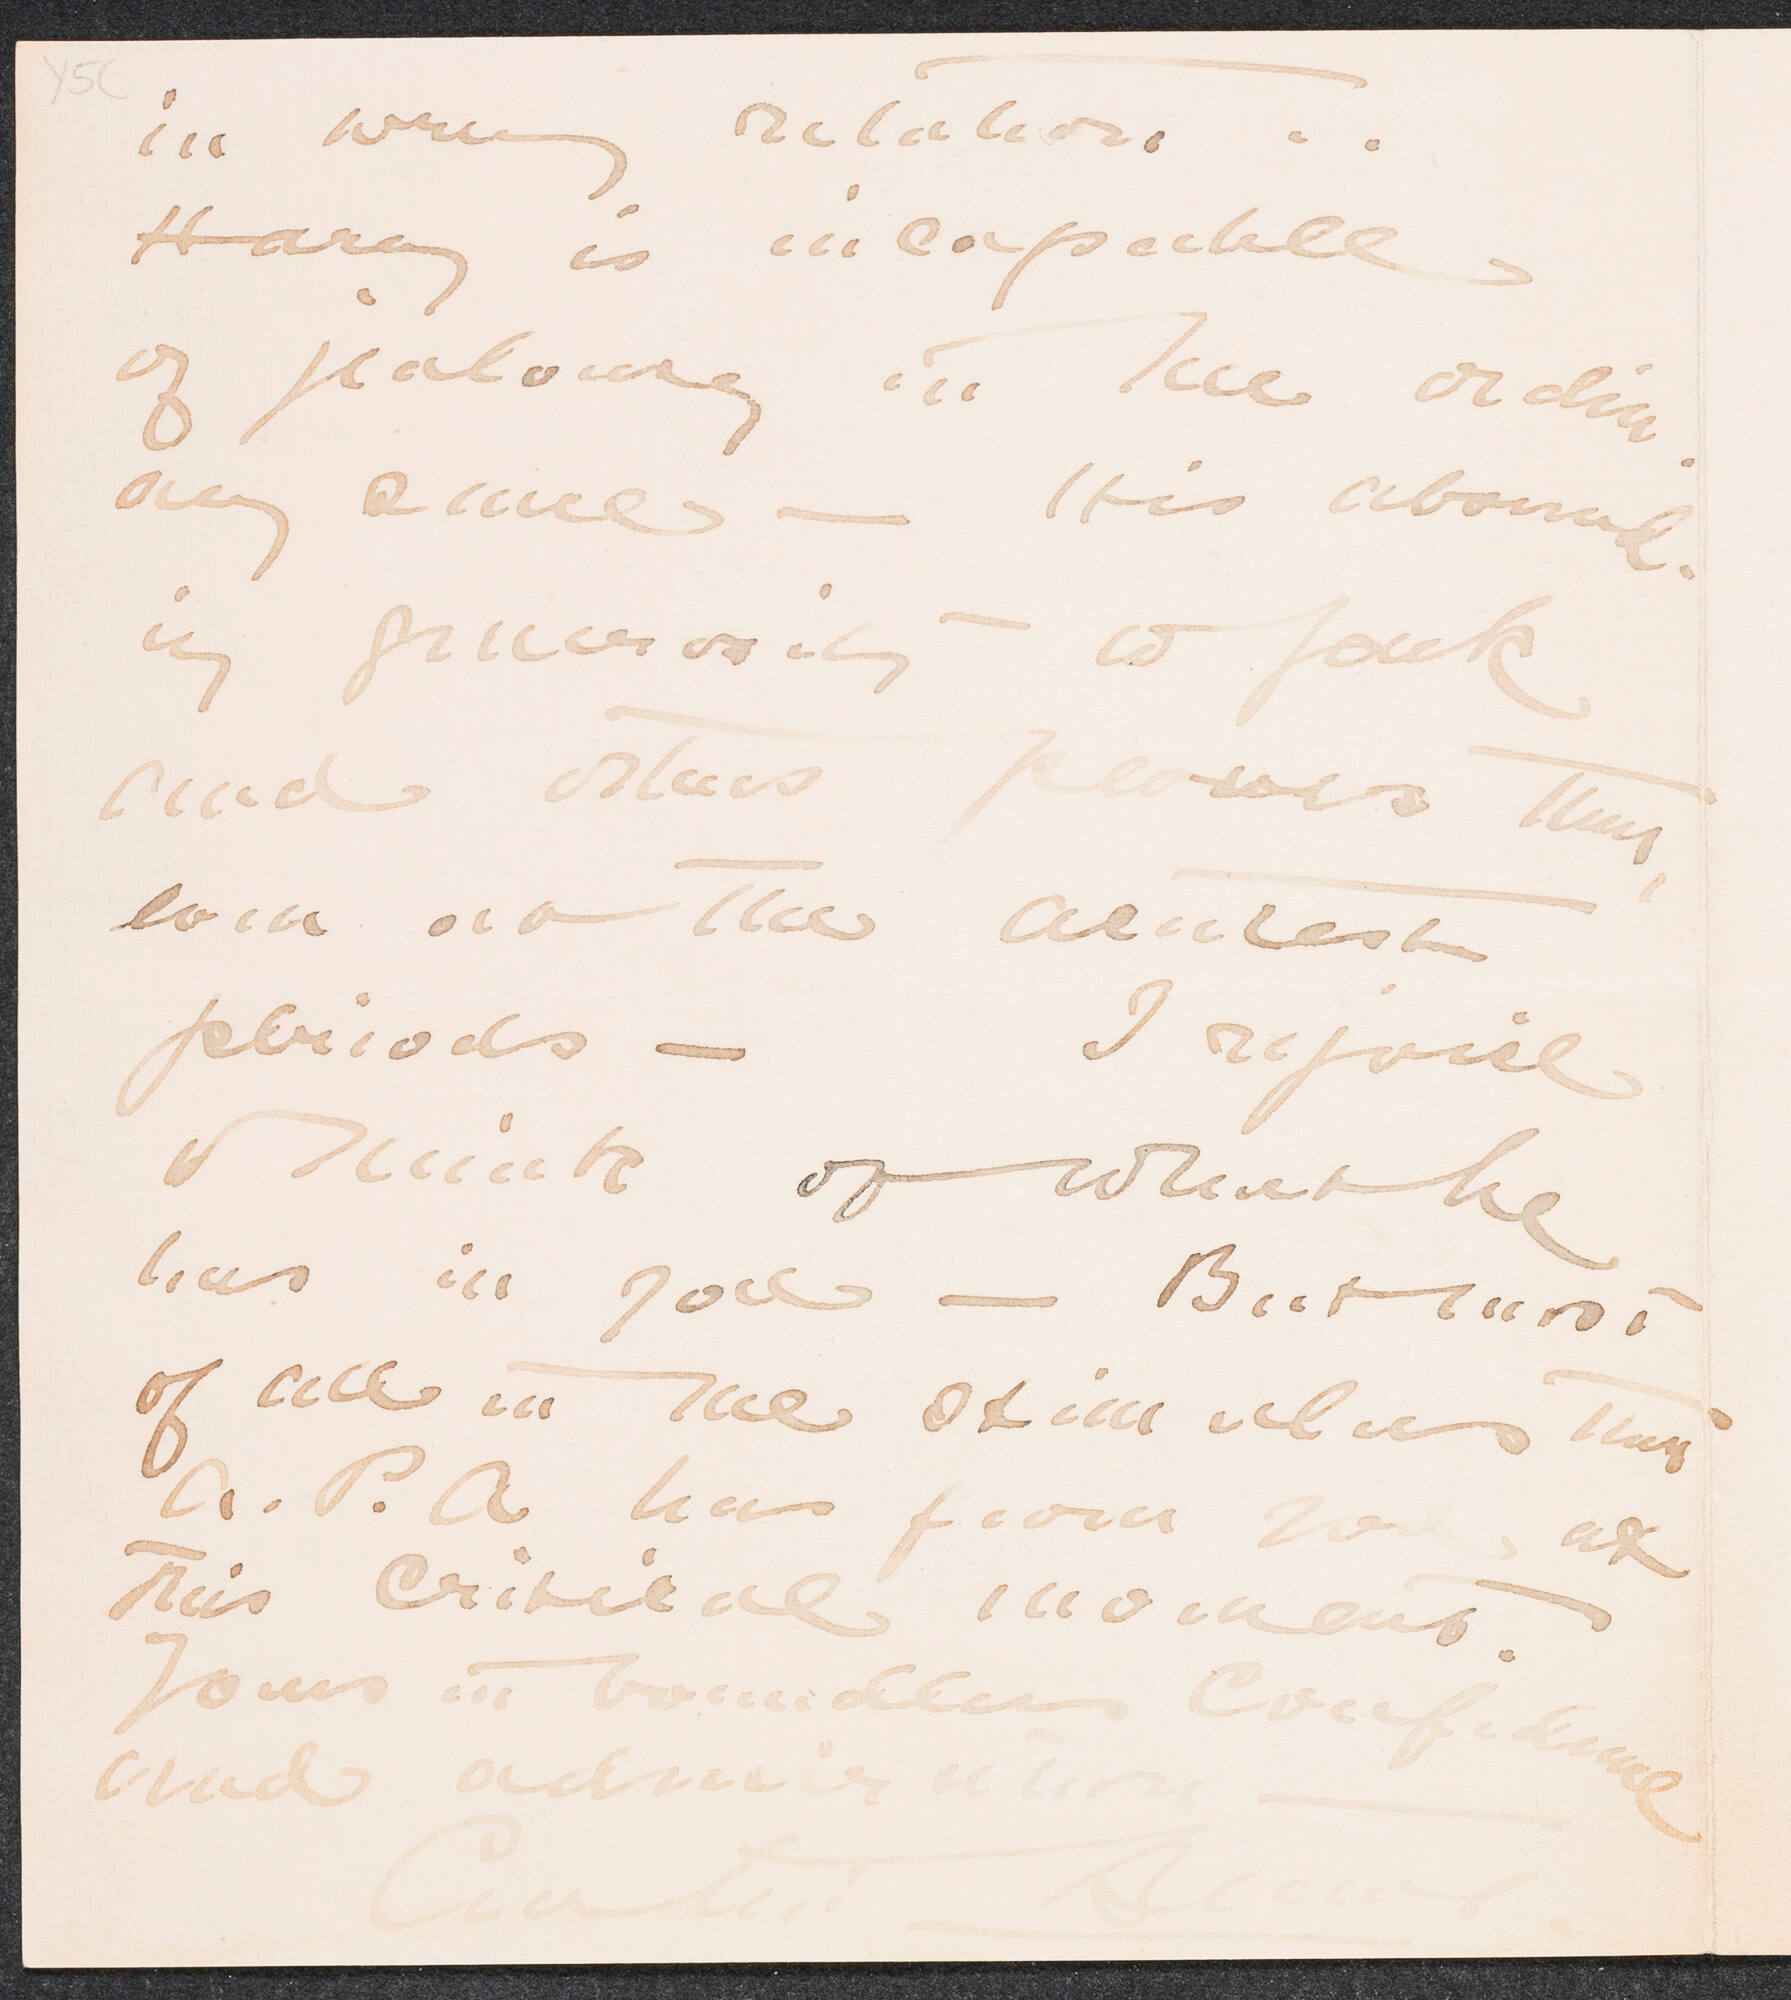 Y5C
in wrong relation ..
Harry is incapable
of jealousy in the ordin
ary sense — His abound-
ing generosity to Jack
and others proves that,
even at the acutest
periods — I rejoice
to think of what he
has in you — But most
of all in the stimulus that
A. P. A has from you, at
this critical moment.
Yours in boundless confidence
and admiration —